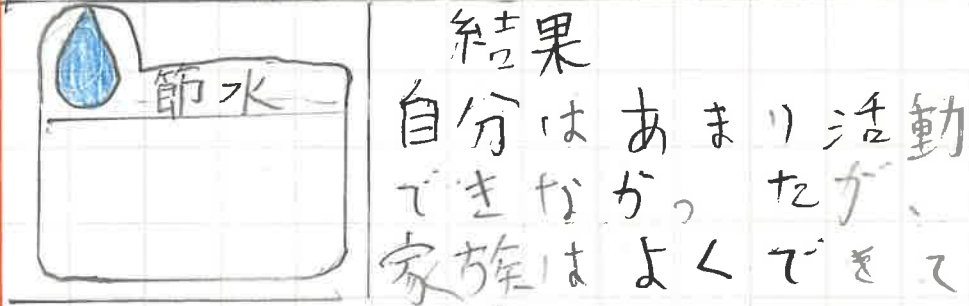 節水
結果
自分はあまり活動
できなかったが、
家族はよくできて